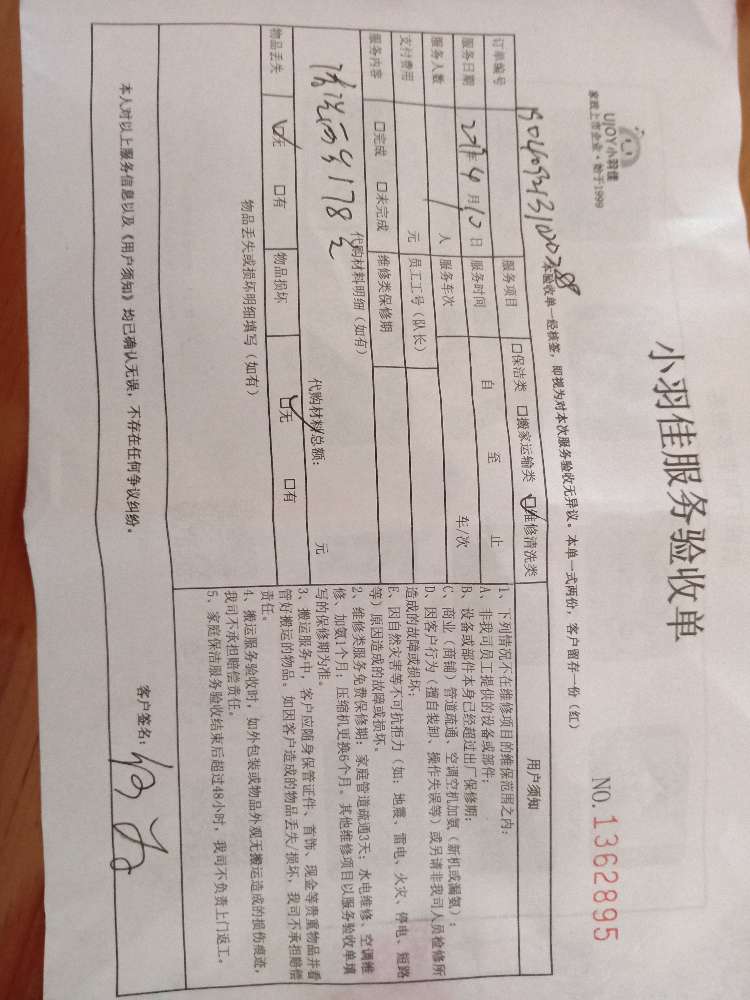 UJOY小羽佳
家政上市企业·始于1999
小羽佳服务验收单
NO.1362895
本验收单一经核签，即视为对本次服务验收无异议。本单一式两份，客户留存一份（红）
订单编号
服务项目 口保洁类 口搬家运输类 口维修清洗类
服务日期 年 4 月 10 日 服务时间 自 至 止
服务人数 人 服务车次 车/次
支付费用 元 员工工号（队长）
服务内容 口完成 口未完成 维修类保修期
代购材料明细（如有）
178元
代购材料总额： 元
物品丢失 口无 口有 物品损坏 口无 口有
物品丢失或损坏明细填写（如有）
用户须知
1、下列情况不在维修项目的维保范围之内：
A、非我司员工提供的设备或部件；
B、设备或部件本身已经超过出厂保修期；
C、商业（商铺）管道疏通、空调空机加氨（新机或漏氨）；
D、因客户行为（擅自装卸、操作失误等）或另请非我司人员检修所
造成的故障或损坏；
E、因自然灾害等不可抗拒力（如：地震、雷电、火灾、停电、短路
等）原因造成的故障或损坏。
2、维修类服务免费保修期：家庭管道疏通3天；水电维修、空调维
修、加氨1个月；压缩机更换6个月。其他维修项目以服务验收单填
写的保修期为准。
3、搬运服务中，客户应随身保管证件、首饰、现金等贵重物品并看
管好搬运的物品。如因客户造成的物品丢失/损坏，我司不承担赔偿
责任。
4、搬运服务验收时，如外包装或物品外观无搬运造成的损伤痕迹，
我司不承担赔偿责任。
5、家庭保洁服务验收结束后超过48小时，我司不负责上门返工。
本人对以上服务信息以及《用户须知》均已确认无误，不存在任何争议纠纷。
客户签名：